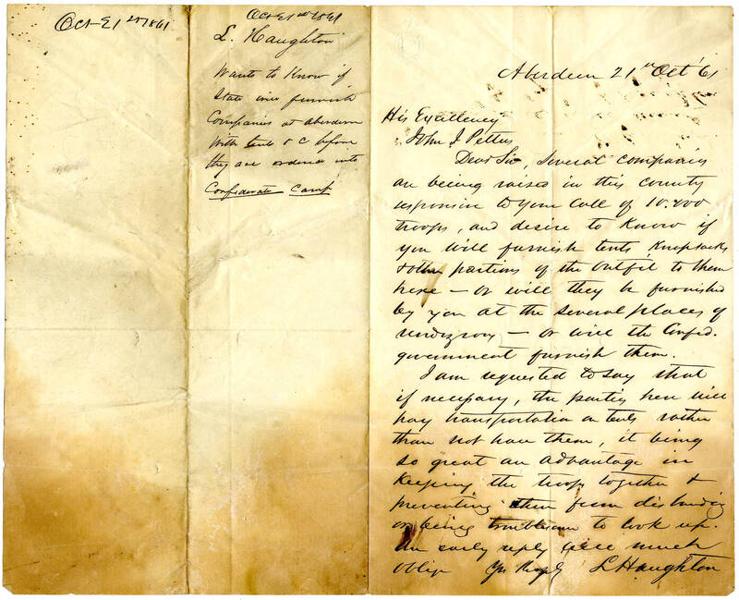 Oct 21st 1861
Oct 21st 1861
L. Haughton
Wants to Know if
State will furnish
Companies at Aberdeen
With tents &c before
they are ordered into
Confederate Camp
Aberdeen 21st Oct '61
His Excellency
John J Pettus
Dear Sir, Several companies
are being raised in this county
responsive to your call of 10.000
troops, and desire to know if
you will furnish tents, Knapsacks
& other portions of the outfit to them
here — or will they be furnished
by you at the several places of
rendezvous — or will the Confed.
government furnish them.
I am requested to say that
if necessary, the parties here will
pay transportation on tents rather
than not have them, it being
so great an advantage in
Keeping the troops together &
preventing them from disbanding
or being troublesome to look up.
An early reply will much
oblige Yr Resply L Haughton